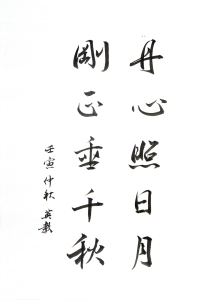 丹心照日月
剛正垂千秋
壬寅仲秋 英毅